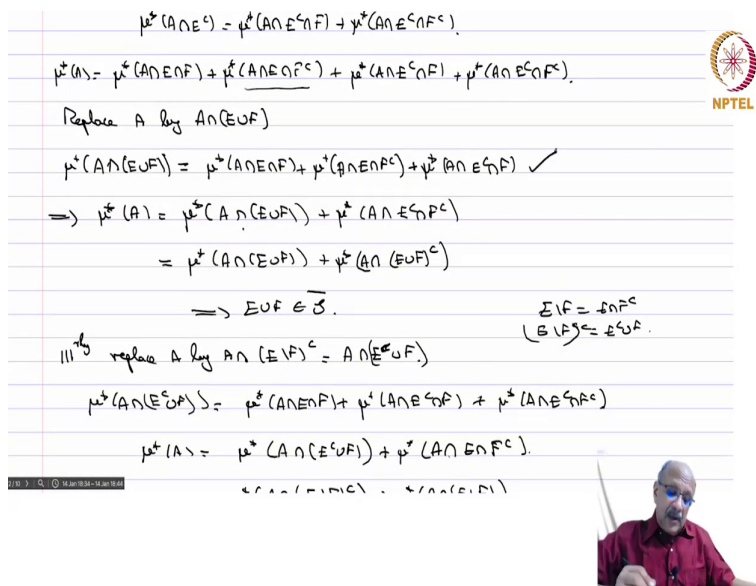 μ*(A∩Eᶜ) = μ*(A∩Eᶜ∩F) + μ*(A∩Eᶜ∩Fᶜ).
μ*(A) = μ*(A∩E∩F) + μ*(A∩E∩Fᶜ) + μ*(A∩Eᶜ∩F) + μ*(A∩Eᶜ∩Fᶜ).
NPTEL
Replace A by A∩(E∪F)
μ*(A∩(E∪F)) = μ*(A∩E∩F) + μ*(A∩E∩Fᶜ) + μ*(A∩Eᶜ∩F) ✓
⇒ μ*(A) = μ*(A∩(E∪F)) + μ*(A∩Eᶜ∩Fᶜ)
= μ*(A∩(E∪F)) + μ*(A∩(E∪F)ᶜ)
⇒ E∪F ∈ S̄.
E\F = E∩Fᶜ
(E\F)ᶜ = Eᶜ∪F.
|||rly replace A by A∩(E\F)ᶜ = A∩(Eᶜ∪F)
μ*(A∩(Eᶜ∪F)) = μ*(A∩E∩F) + μ*(A∩Eᶜ∩F) + μ*(A∩Eᶜ∩Fᶜ)
μ*(A) = μ*(A∩(Eᶜ∪F)) + μ*(A∩E∩Fᶜ).
2/10 14 Jan 18:34 – 14 Jan 18:44